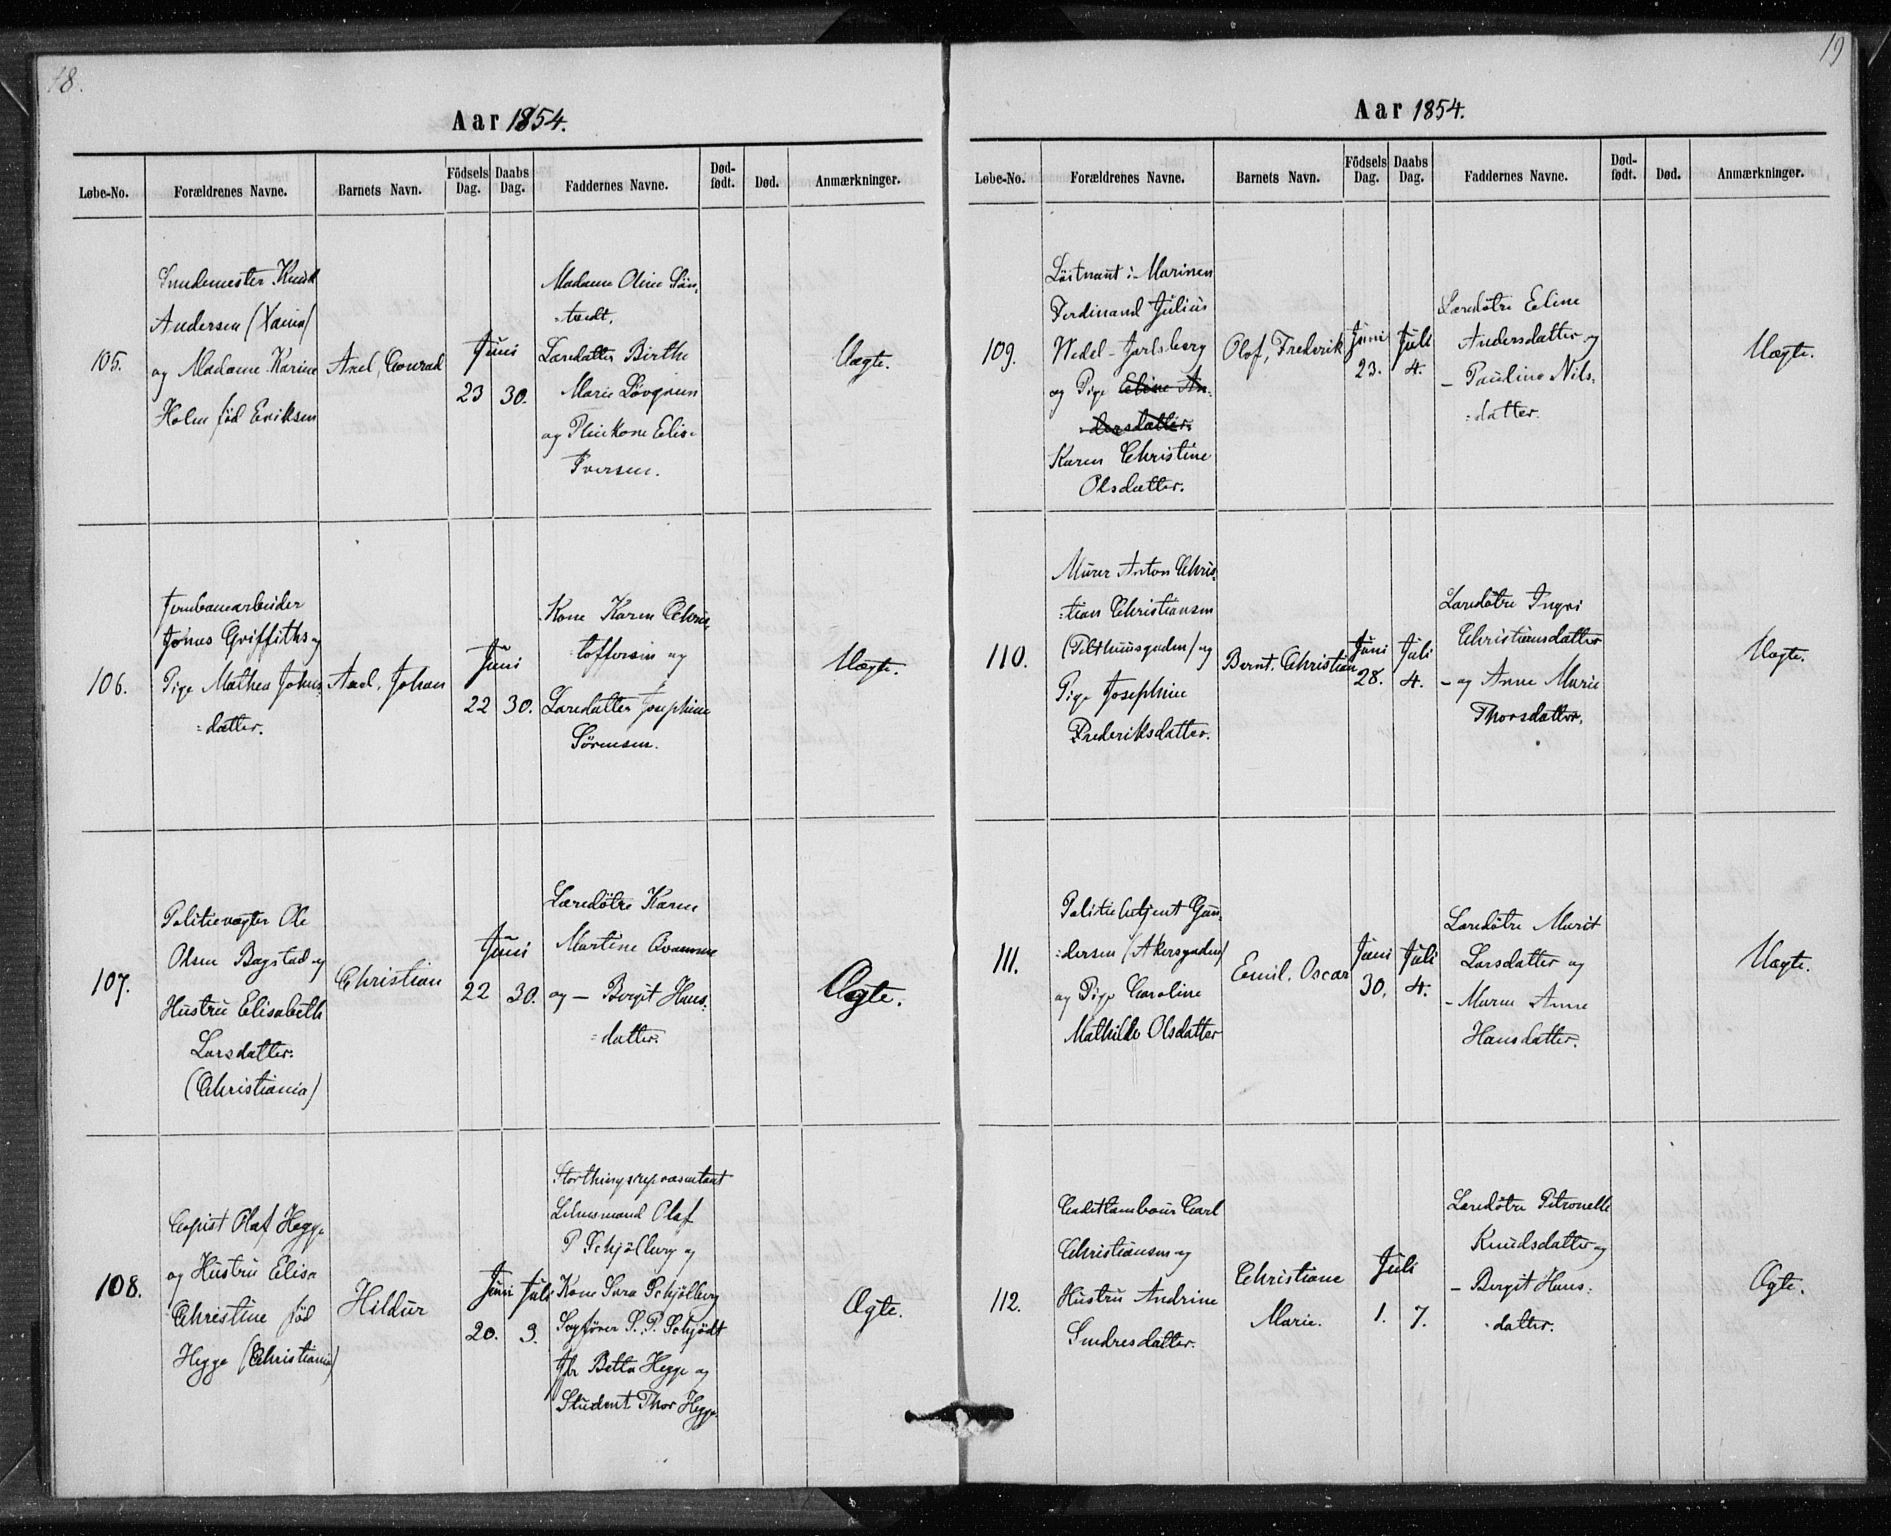 18.
Aar 1854.
Løbe-No. Forældrenes Navne. Barnets Navn. Födsels Dag. Daabs Dag. Faddernes Navne. Død-født. Død. Anmærkninger.
105.
Smedemester Knud
Andersen
og Madame Karine
Holm fød Eriksen
Axel, Conrad
Juni
23 30.
Madame Oline
Læredatter Birthe
Marie Løvgren
og Pleiekone Elis.
Iversen.
Uægte.
106.
Jernbanearbeider
Jones Griffiths og
Pige Mathea Johns-
=datter.
Axel, Johan
Juni
22 30.
Kone Karen Chris-
toffersen og
Læredatter Josephine
Sørensen.
Uægte.
107.
Politievægter Ole
Olsen Bagstad og
Hustru Elisabeth
Larsdatter.
(Christiania)
Christian
Juni
22 30.
Læredøtre Karen
Martine
og — Birgit Hans-
=datter.
Ægte.
108.
Copist Olaf Hegge
og Hustru Elise
Christine fød
Hegge (Christiania)
Hildur
Juni Juli
20. 3.
Storthingsrepræsentant
Lehnsmand Olaf
P Schjølberg og
Kone Sara Schjølberg
Sagfører S. P. Schjødt
Jfr Betta Hegge og
Student Thor Hegge
Ægte.
19
Aar 1854.
Løbe-No. Forældrenes Navne. Barnets Navn. Födsels Dag. Daabs Dag. Faddernes Navne. Død-født. Død. Anmærkninger.
109.
Löitnant i Marinen
Ferdinand Julius
Wedel-Jarlsberg
og Pige Eline An-
=dersdatter.
Karen Christine
Olsdatter.
Olof, Frederik
Juni Juli
23. 4.
Læredøtre Eline
Andersdatter og
— Pauline Nils-
=datter.
Uægte.
110.
Murer Anton Chris-
=tian Christiansen
(Pilthuusgaden) og
Pige Josephine
Frederiksdatter.
Bernt, Christian
Juni Juli
28. 4.
Læredøtre Ingri
Christiansdatter
— og Anne Marie
Thorsdatter.
Uægte.
111.
Politiebetjent Gun-
=dersen (Akersgaden)
og Pige Caroline
Mathilde Olsdatter
Emil, Oscar
Juni Juli
30. 4.
Læredøtre Marit
Larsdatter og
— Maren Anne
Hansdatter.
Uægte.
112.
Cadettambour Carl
Christiansen og
Hustru Andrine
Smdresdatter.
Christiane
Marie.
Juli
1. 7.
Læredøtre Petronelle
Knudsdatter og
— Birgit Hans-
=datter.
Ægte.